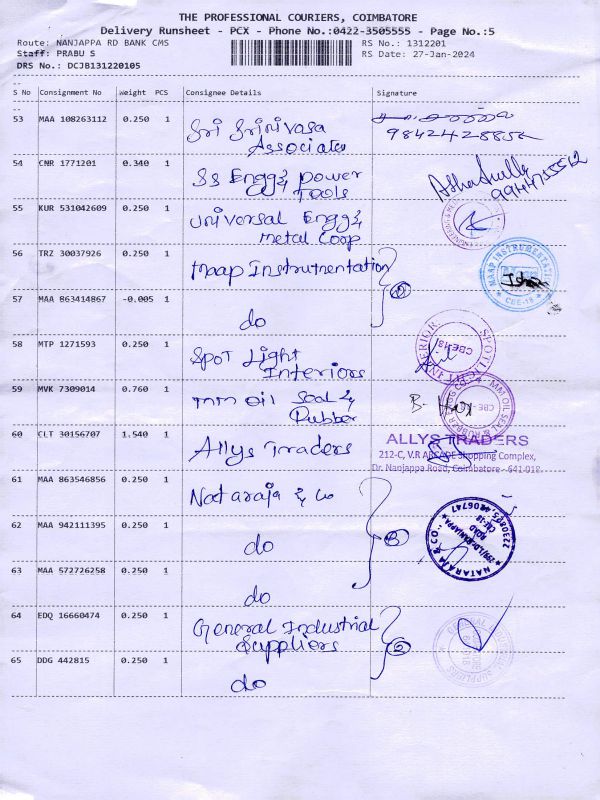 THE PROFESSIONAL COURIERS, COIMBATORE
Delivery Runsheet - PCX - Phone No.:0422-3505555 - Page No.:5
Route: NANJAPPA RD BANK CMS
RS No.: 1312201
Staff: PRABU S
RS Date: 27-Jan-2024
DRS No.: DCJB131220105
S No Consignment No Weight PCS Consignee Details Signature
53 MAA 108263112 0.250 1 Sri Srinivasa
Associates
9842428852
54 CNR 1771201 0.340 1 SS Engg & power
Tools
55 KUR 531042609 0.250 1 Universal Engg &
Metal Coop
56 TRZ 30037926 0.250 1 Maap Instrumentation
MAAP INSTRUMENTATION
CBE-18
57 MAA 863414867 -0.005 1 do
2
58 MTP 1271593 0.250 1 Spot Light
Interiors
SPOTLIGHT INTERIOR
CBE-18
59 MVK 7309014 0.760 1 MM Oil Seal &
Rubber
MM OIL SEAL & RUBBER
CBE
60 CLT 30156707 1.540 1 Allys Traders
ALLYS TRADERS
212-C, V.R ARCADE Shopping Complex,
Dr. Nanjappa Road, Coimbatore - 641 018
61 MAA 863546856 0.250 1 Nataraja & Co
62 MAA 942111395 0.250 1 do
3
NATARAJA & CO.,
NANJAPPA
ROAD
CBE-18
63 MAA 572726258 0.250 1 do
64 EDQ 16660474 0.250 1 General Industrial
Suppliers
2
65 DDG 442815 0.250 1 do